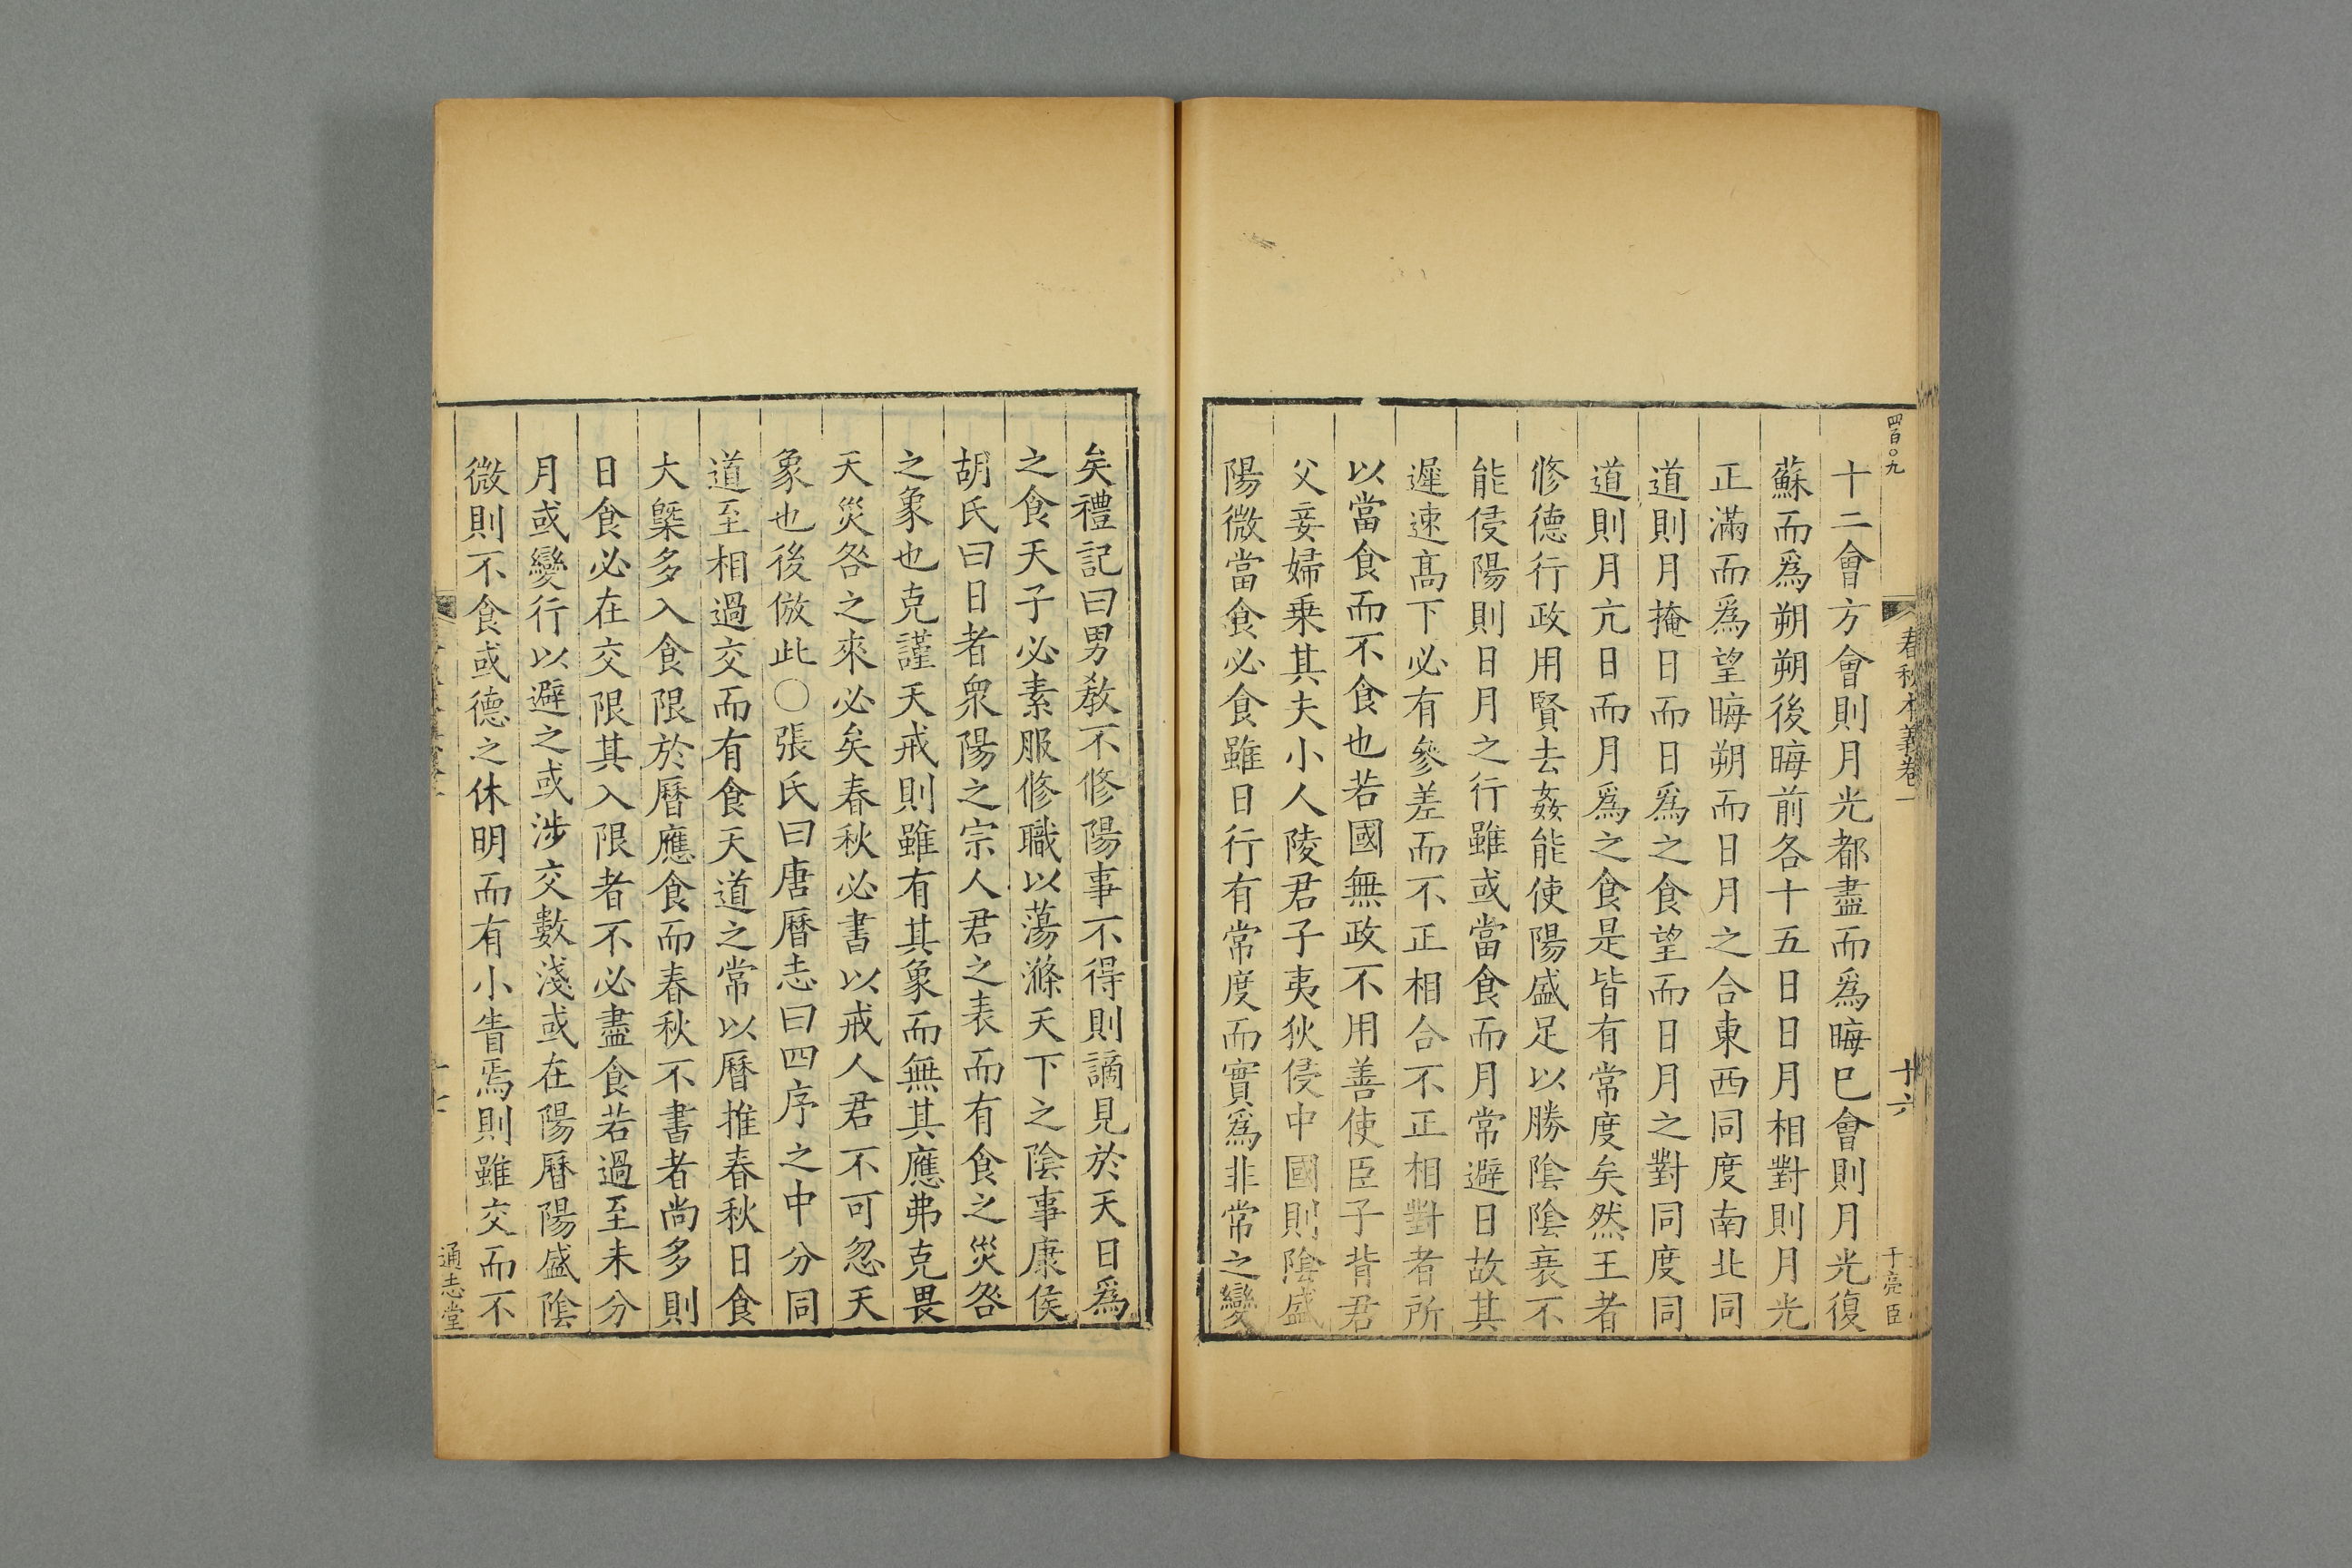 四百〇九
春秋本義卷一
十六
于亮臣
十二會方會則月光都盡而爲晦巳會則月光復
蘇而爲朔朔後晦前各十五日日月相對則月光
正滿而爲望晦朔而日月之合東西同度南北同
道則月掩日而日爲之食望而日月之對同度同
道則月亢日而月爲之食是皆有常度矣然王者
修德行政用賢去姦能使陽盛足以勝陰陰衰不
能侵陽則日月之行雖或當食而月常避日故其
遲速高下必有參差而不正相合不正相對者所
以當食而不食也若國無政不用善使臣子背君
父妾婦乗其夫小人陵君子夷狄侵中國則陰盛
陽微當食必食雖日行有常度而實爲非常之變
矣禮記曰男敎不修陽事不得則謫見於天日爲
之食天子必素服修職以蕩滌天下之陰事康侯
胡氏曰日者衆陽之宗人君之表而有食之災咎
之象也克謹天戒則雖有其象而無其應弗克畏
天災咎之來必矣春秋必書以戒人君不可忽天
象也後倣此〇張氏曰唐曆志曰四序之中分同
道至相過交而有食天道之常以曆推春秋日食
大槩多入食限於曆應食而春秋不書者尚多則
日食必在交限其入限者不必盡食若過至未分
月或變行以避之或涉交數淺或在陽曆陽盛陰
微則不食或德之休明而有小眚焉則雖交而不
通志堂